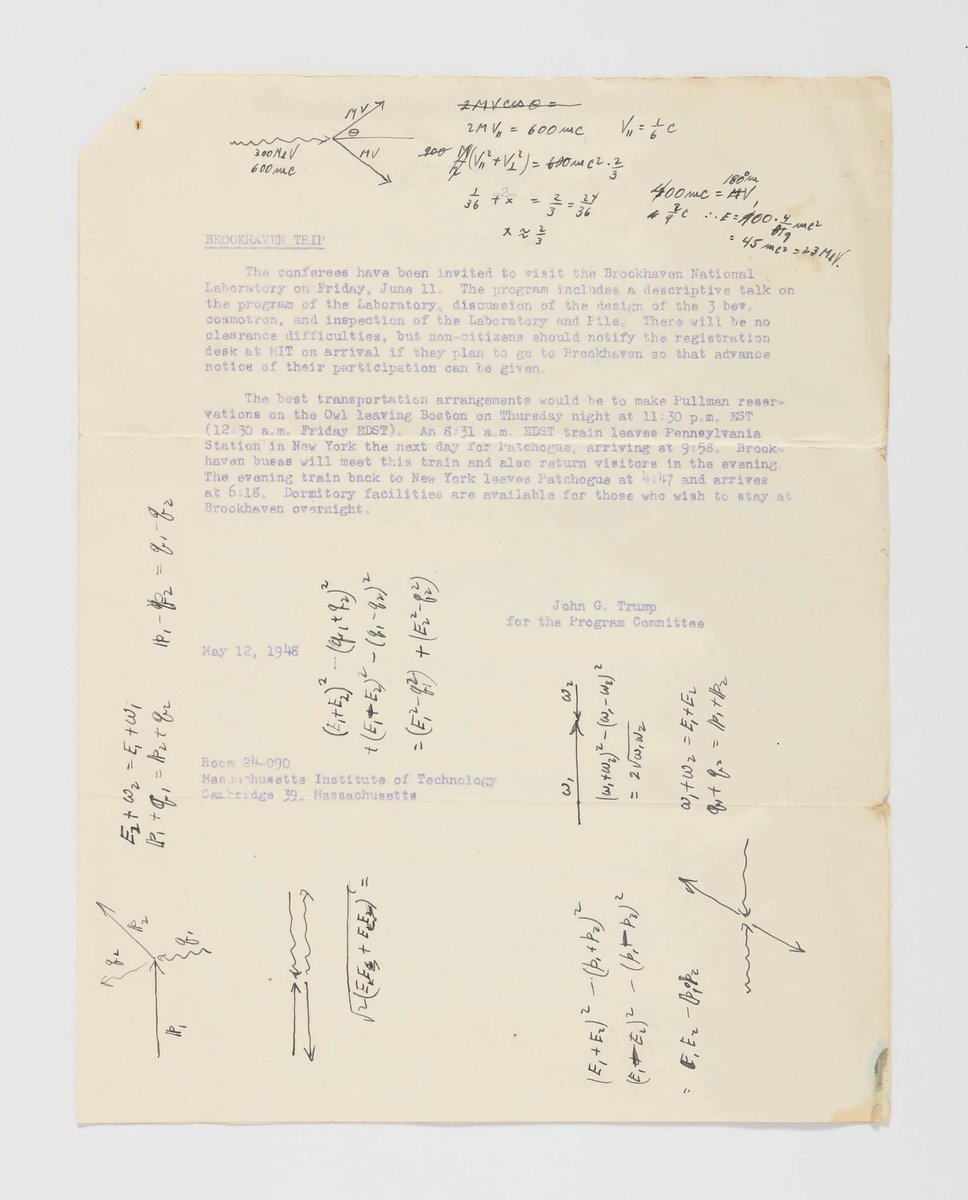 MV
θ
MV
300 MeV
600 mc
2MV cos θ =
2MV∥ = 600mc V∥ = 1/6 c
(V∥² + V⊥²) = 600mc² · 2/3
1/36 + x = 2/3 = 24/36
x ≈ 2/3
400mc =
2/9 c ∴ E =
= 45 mc² = 23 MeV.
BROOKHAVEN TRIP
The conferees have been invited to visit the Brookhaven National
Laboratory on Friday, June 11. The program includes a descriptive talk on
the program of the Laboratory, discussion of the design of the 3 bev.
cosmotron, and inspection of the Laboratory and Pile. There will be no
clearance difficulties, but non-citizens should notify the registration
desk at MIT on arrival if they plan to go to Brookhaven so that advance
notice of their participation can be given.
The best transportation arrangements would be to make Pullman reser-
vations on the Owl leaving Boston on Thursday night at 11:30 p.m. EST
(12:30 a.m. Friday EDST). An 8:31 a.m. EDST train leaves Pennsylvania
Station in New York the next day for Patchogue, arriving at 9:58. Brook-
haven buses will meet this train and also return visitors in the evening
The evening train back to New York leaves Patchogue at 4:47 and arrives
at 6:18. Dormitory facilities are available for those who wish to stay at
Brookhaven overnight.
John G. Trump
for the Program Committee
May 12, 1948
Room 24-090
Massachusetts Institute of Technology
Cambridge 39, Massachusetts
E₂ + ω₂ = E₁ + ω₁
p₁ + q₁ = p₂ + q₂ p₁ - q₂ = q₁ - q₂
q₂
p₂
q₁
p₁
(E₁+E₂)² - (q₁+q₂)²
+ (E₁-E₂)² - (q₁-q₂)²
= (E₁²-q₁²) + (E₂²-q₂²)
ω₁ ω₂
(ω₁+ω₂)² - (ω₁-ω₂)²
= 2√ω₁ω₂
ω₁ + ω₂ = E₁ + E₂
q₁ + q₂ = p₁ + p₂
(E₁+E₂)² - (p₁+p₂)²
(E₁-E₂)² - (p₁-p₂)²
= E₁E₂ - p₁p₂